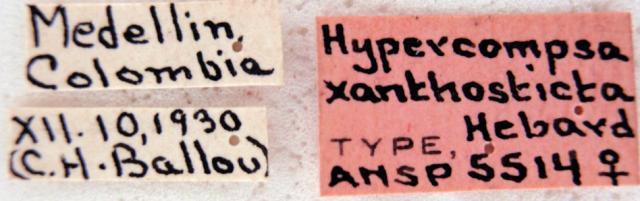 Medellin,
Colombia
XII.10,1930
(C.H.Ballou)
Hypercompsa
xanthosticta
Hebard
TYPE,
ANSP 5514 ♀